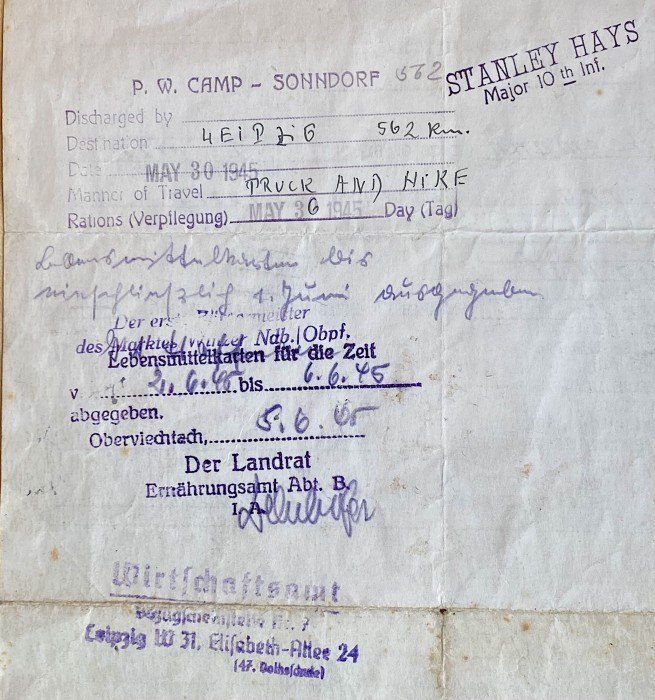 P. W. CAMP – SONNDORF 562
STANLEY HAYS
Major 10 th Inf.
Discharged by
Destination LEIPZIG 562 Km.
Date MAY 30 1945
Manner of Travel TRUCK AND HIKE
Rations (Verpflegung) MAY 30 1945 6 Day (Tag)
Lebensmittelkarten bis
einschließlich 1. Juni ausgegeben
Der
des Ndb./Obpf.
Lebensmittelkarten für die Zeit
v 2.6.45 bis 6.6.45
abgegeben.
Oberviechtach, 5.6.45
Der Landrat
Ernährungsamt Abt. B.
I. A.
Wirtschaftsamt
Bezugscheinstelle Nr. 7
Leipzig W 31, Elisabeth-Allee 24
(47. Volksschule)